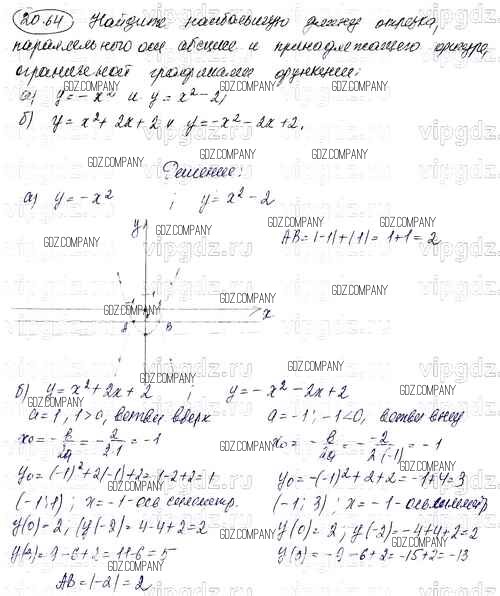 20.64 Найдите наибольшую длину отрезка,
параллельного оси абсцисс и принадлежащего фигуре,
ограниченной графиками функции:
а) y = -x² и y = x² - 2,
б) y = x² + 2x + 2 и y = -x² - 2x + 2.
Решение:
а) y = -x² ; y = x² - 2
AB = |-1| + |1| = 1 + 1 = 2
y
x
-1 1
A B
б) y = x² + 2x + 2 y = -x² - 2x + 2
a = 1, 1 > 0, ветви вверх a = -1; -1 < 0, ветви вниз
x₀ = -b/2a = -2/2·1 = -1 x₀ = -b/2a = -(-2)/2·(-1) = -1
y₀ = (-1)² + 2(-1) + 2 = 1 - 2 + 2 = 1 y₀ = -(-1)² + 2 + 2 = -1 + 4 = 3
(-1; 1); x = -1 - ось симметр. (-1; 3); x = -1 - ось симметр.
y(0) = 2, y(-2) = 4 - 4 + 2 = 2 y(0) = 2; y(-2) = -4 + 4 + 2 = 2
= 9 - 6 + 2 = 11 - 6 = 5 = -9 - 6 + 2 = -15 + 2 = -13
AB = |-2| = 2
GDZ.COMPANY
vipgdz.ru